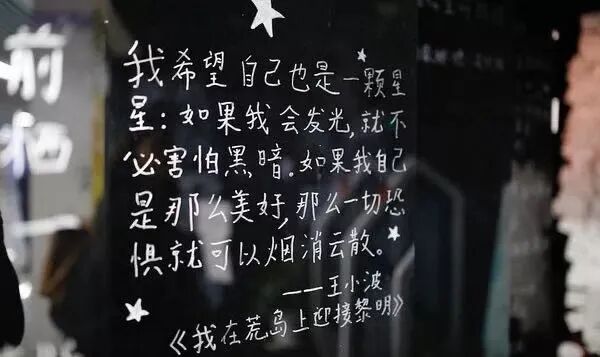 我希望自己也是一颗星
星：如果我会发光，就不
必害怕黑暗。如果我自己
是那么美好，那么一切恐
惧就可以烟消云散。
——王小波
《我在荒岛上迎接黎明》
前栖一